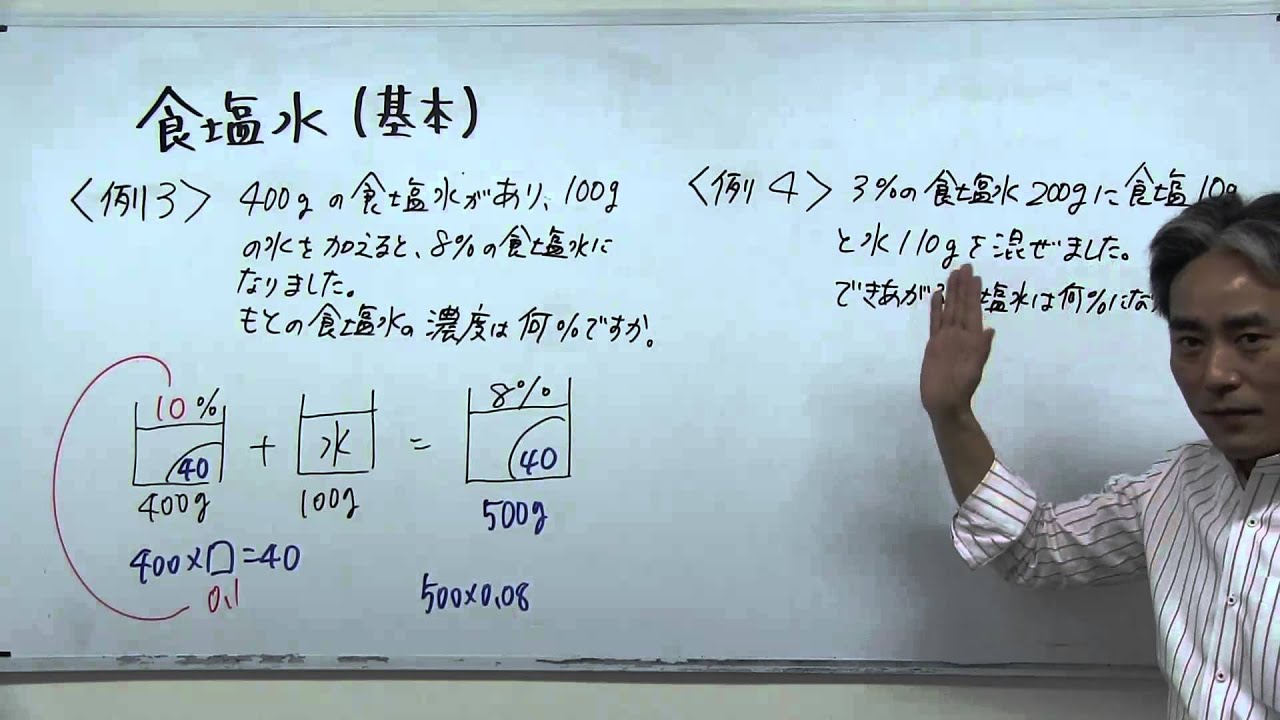 食塩水(基本)
〈例3〉 400gの食塩水があり、100g
の水を加えると、8%の食塩水に
なりました。
もとの食塩水の濃度は何%ですか。
10%
40
400g
+
水
100g
=
8%
40
500g
400×□=40
0.1
500×0.08
〈例4〉 3%の食塩水200gに食塩10g
と水110gを混ぜました。
できあがる 塩水は何%にな